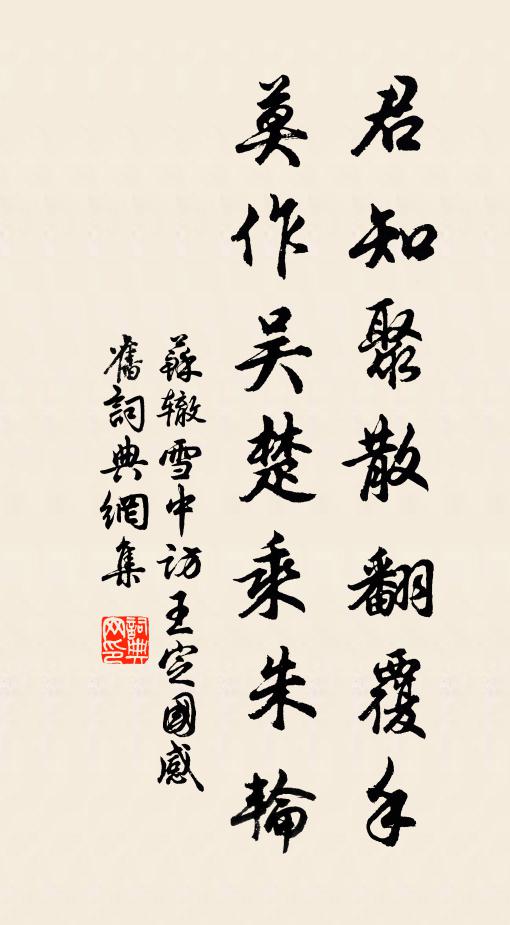 君知聚散翻覆手
莫作吴楚乘朱輪
蘇辙雪中访王定國感
舊詞典網集
詞典
网印